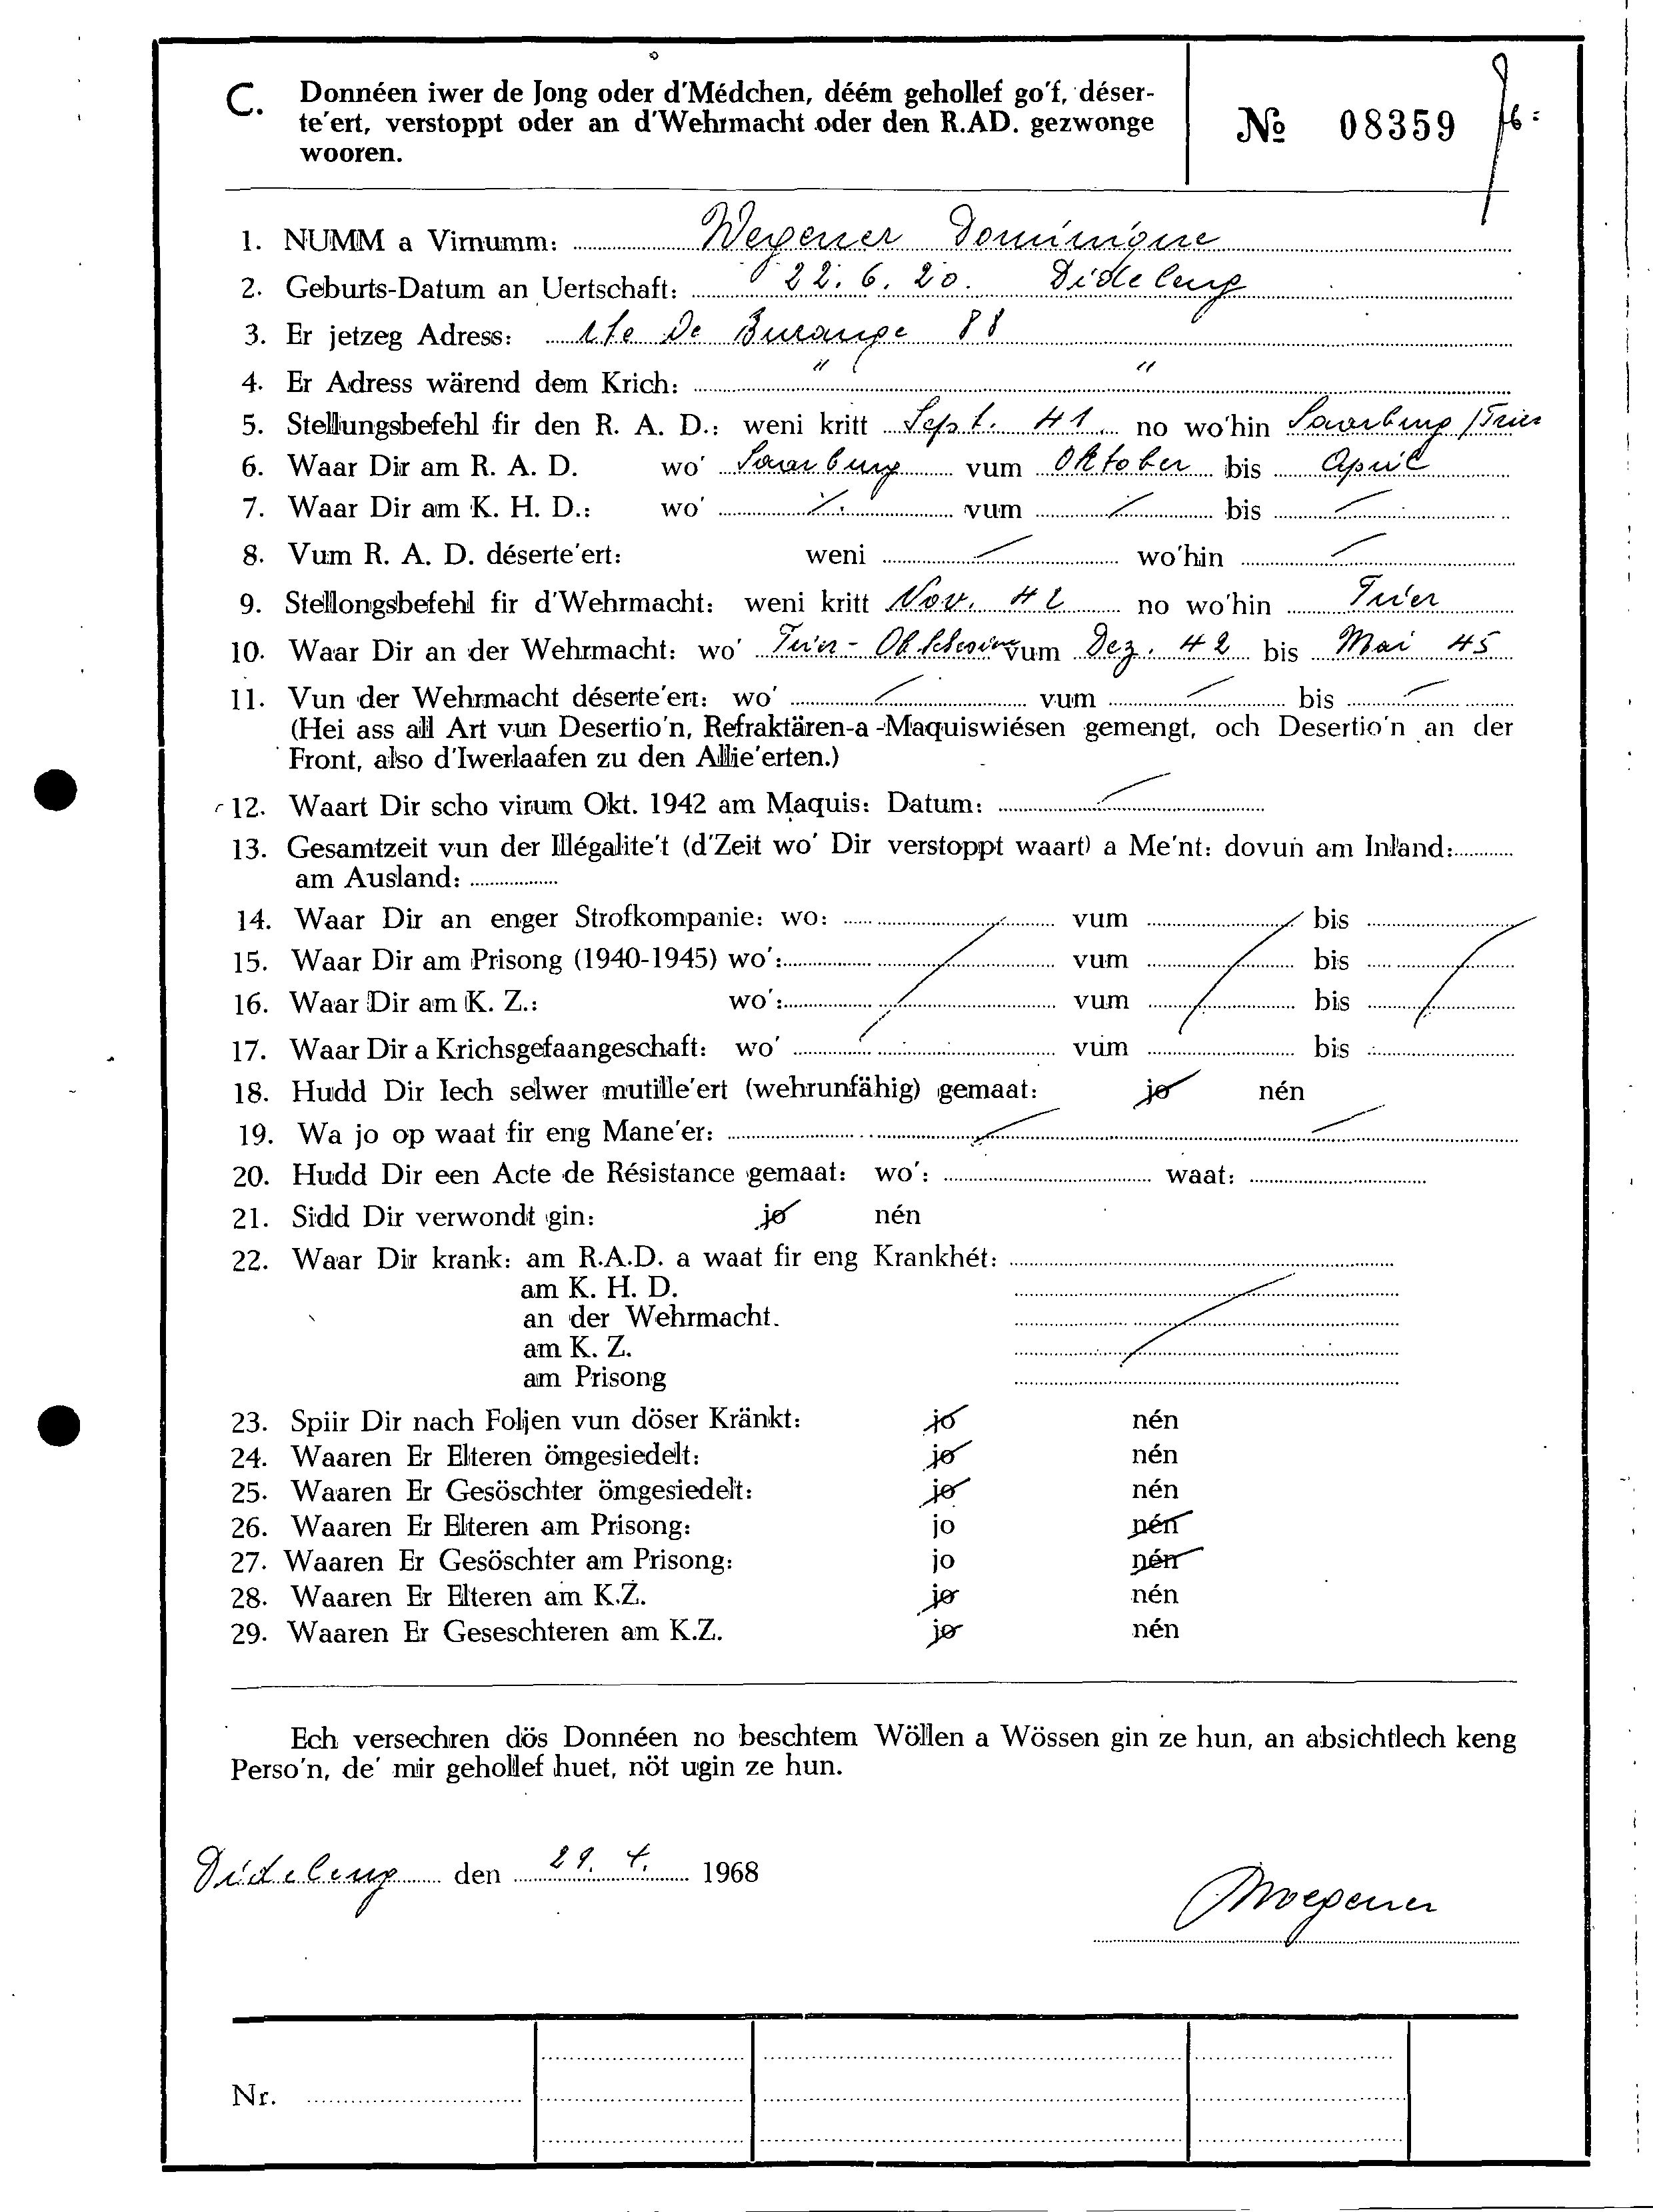 C. Donnéen iwer de Jong oder d'Médchen, déém gehollef go'f, déser-
te'ert, verstoppt oder an d'Wehrmacht oder den R.AD. gezwonge
wooren.
№ 08359
1. NUMM a Virnumm: Wegener Dominique
2. Geburts-Datum an Uertschaft: 22. 6. 20. Dideleng
3. Er jetzeg Adress: rte de Burange 88
4. Er Adress wärend dem Krich: " "
5. Stellungsbefehl fir den R. A. D.: weni kritt Sept. 41. no wo'hin Saarburg / Trier
6. Waar Dir am R. A. D. wo' Saarburg vum Oktober bis April
7. Waar Dir am K. H. D.: wo' vum bis
8. Vum R. A. D. déserte'ert: weni wo'hin
9. Stellongsbefehl fir d'Wehrmacht: weni kritt Nov. 42 no wo'hin Trier
10. Waar Dir an der Wehrmacht: wo' Trier - vum Dez. 42 bis Mai 45
11. Vun der Wehrmacht déserte'ert: wo' vum bis
(Hei ass all Art vun Desertio'n, Refraktären-a-Maquiswiésen gemengt, och Desertio'n an der
Front, also d'Iwerlaafen zu den Allie'erten.)
12. Waart Dir scho virum Okt. 1942 am Maquis: Datum:
13. Gesamtzeit vun der Illégalite't (d'Zeit wo' Dir verstoppt waart) a Me'nt: dovun am Inland:
am Ausland:
14. Waar Dir an enger Strofkompanie: wo: vum bis
15. Waar Dir am Prisong (1940-1945) wo': vum bis
16. Waar Dir am K. Z.: wo': vum bis
17. Waar Dir a Krichsgefaangeschaft: wo' vum bis
18. Hudd Dir Iech selwer mutille'ert (wehrunfähig) gemaat: jo nén
19. Wa jo op waat fir eng Mane'er:
20. Hudd Dir een Acte de Résistance gemaat: wo': waat:
21. Sidd Dir verwondt gin: jo nén
22. Waar Dir krank: am R.A.D. a waat fir eng Krankhét:
am K. H. D.
an der Wehrmacht.
am K. Z.
am Prisong
23. Spiir Dir nach Foljen vun döser Kränkt: jo nén
24. Waaren Er Elteren ömgesiedelt: jo nén
25. Waaren Er Gesöschter ömgesiedelt: jo nén
26. Waaren Er Elteren am Prisong: jo nén
27. Waaren Er Gesöschter am Prisong: jo nén
28. Waaren Er Elteren am K.Z. jo nén
29. Waaren Er Geseschteren am K.Z. jo nén
Ech versechren dös Donnéen no beschtem Wöllen a Wössen gin ze hun, an absichtlech keng
Perso'n, de' mir gehollef huet, nöt ugin ze hun.
Dideleng den 29. 4. 1968
Wegener
Nr.